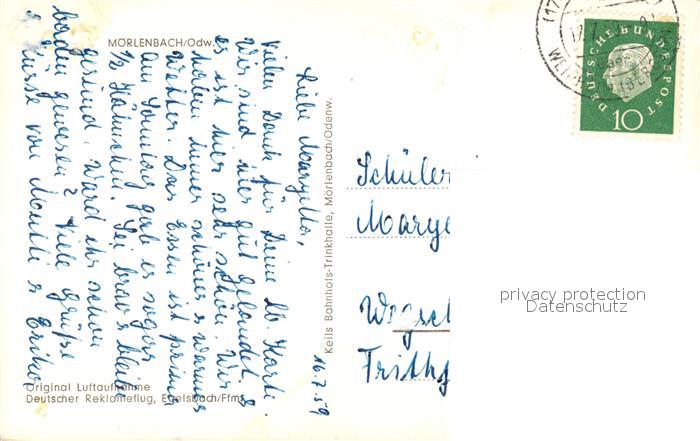 MÖRLENBACH/Odw.
16.7.59
Liebe
vielen Dank für Deine lb Karte.
Wir sind hier gut gelandet &
es ist hier sehr schön. Wir
haben immer schönes & warmes
Wetter. Das Essen ist prima
am Sonntag gab es sogar
1/2 Hähnchen. Sei brav & bleibe
gesund. Ward ihr schon
baden gewesen? Viele Grüße
Küsse von Mutti & Erika
Original Luftaufnahme
Deutscher Reklameflug, Egelsbach/Ffm.
Keils Bahnhofs-Trinkhalle, Mörlenbach/Odenw.
DEUTSCHE BUNDESPOST
10
Schüler
privacy protection
Datenschutz